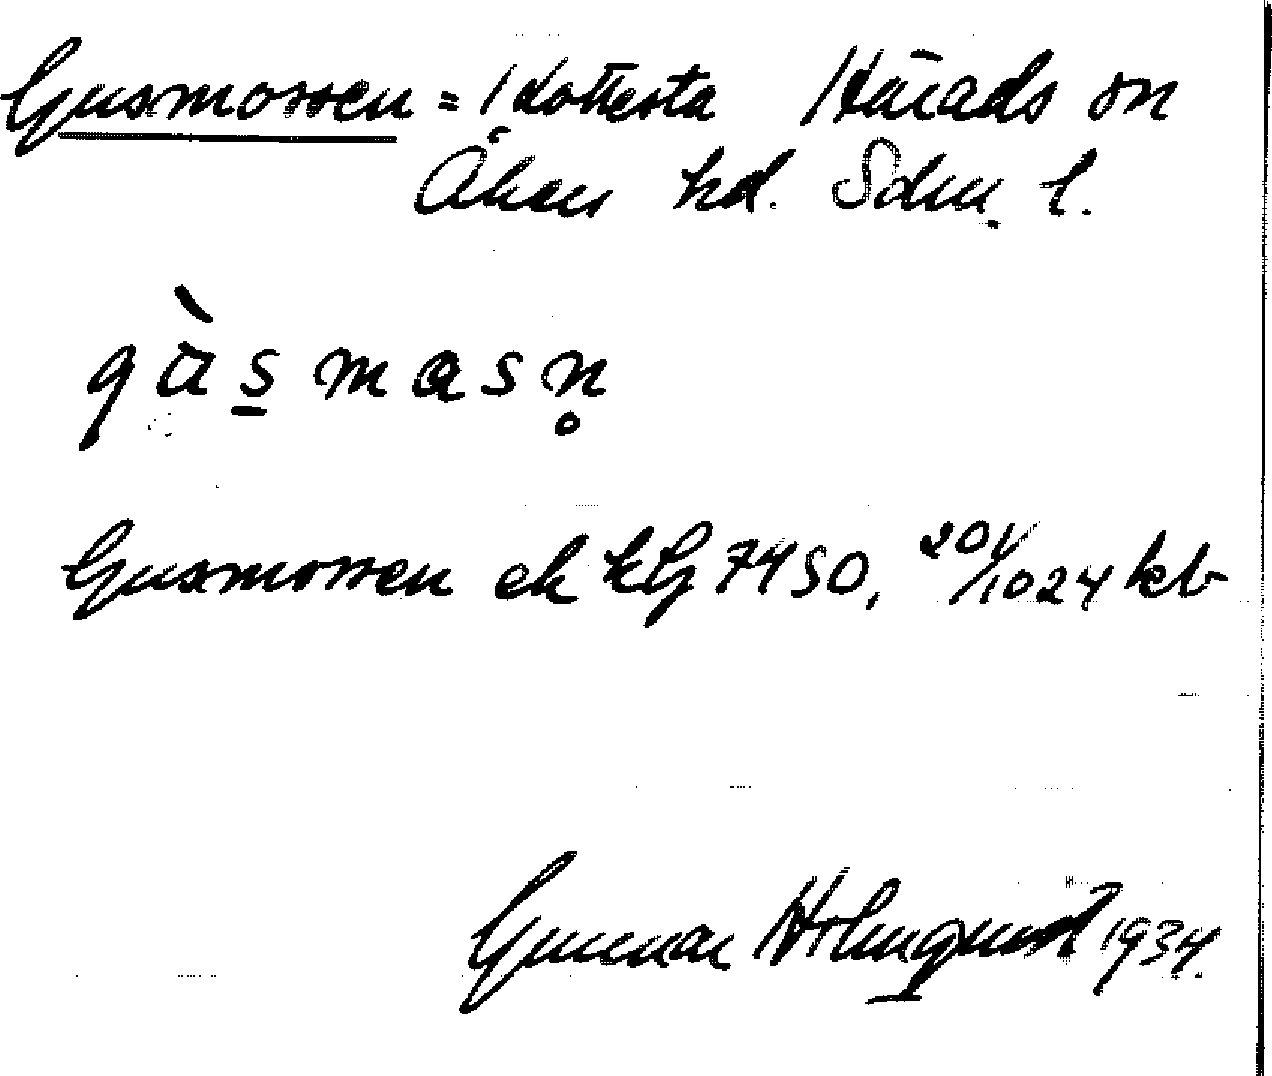 Gusmossen = i Kottesta Härads sn
Åkers hd. Sdm. l.
gàsmasn̥
Gusmossen ek kG 7450, 201/1024 kb
Gunnar Holmquist 1934.